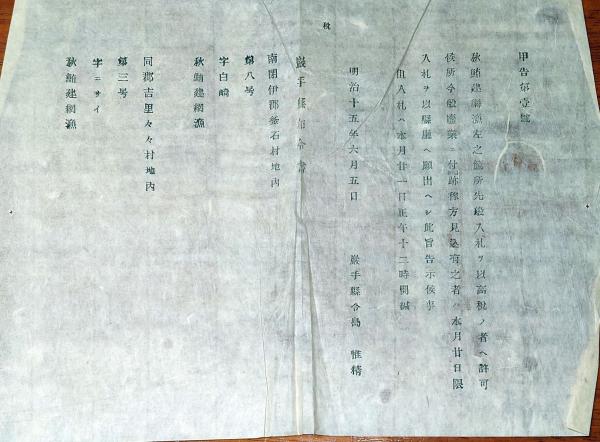 甲告第壹號
秋鮪建網漁左之箇所先般入札ヲ以高税ノ者ヘ許可
候所今般廢業ニ付跡稼方見込有之者ハ本月廿日限
入札ヲ以縣廳ヘ願出ヘシ此旨告示候事
但入札ハ本月廿一日正午十二時開緘
明治十五年六月五日
巖手縣令島 惟精
税
巖手縣
南閉伊郡釜石村地内
第八号
字白﨑
秋鮪建網漁
同郡吉里々々村地内
第三号
字ニサイ
秋鮪建網漁